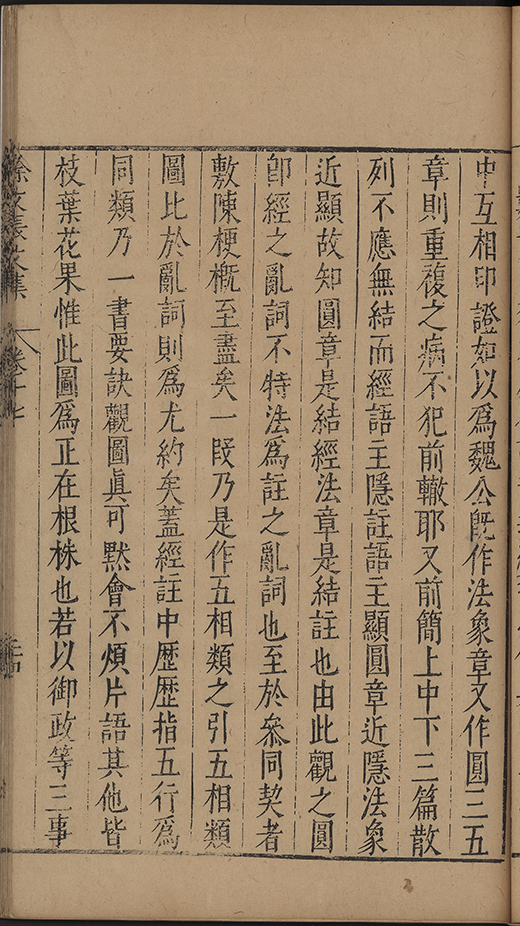 中互相印證如以爲魏公旣作法象章又作圓三五
章則重複之病不犯前轍耶又前簡上中下三篇散
列不應無結而經語主隱註語主顯圓章近隱法象
近顯故知圓章是結經法章是結註也由此觀之圓
卽經之亂詞不特法爲註之亂詞也至於叅同契者
敷陳梗概至盡矣一叚乃是作五相類之引五相類
圖比於亂詞則爲尤約矣蓋經註中歷歷指五行爲
同類乃一書要訣觀圖眞可黙會不煩片語其他皆
枝葉花果惟此圖爲正在根株也若以御政等三事
徐文長文集 卷十七